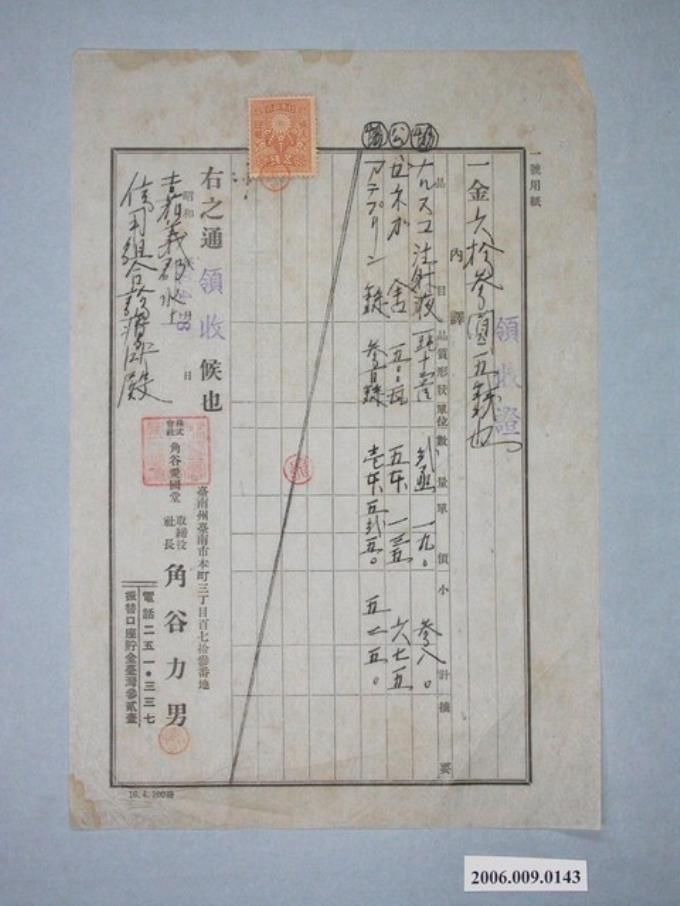 一號用紙
領收證
一金六拾參圓〇五錢也
內譯
品目 品質形狀 單位 數量 單價 小計 摘要
注射液 一九〇 參八〇
五〇〇瓦 五本 一三五 六七五
アテブリン 錠 參百錠 壹本 五貳五〇 五二五〇
公
右之通領收候也
昭和 月 日
嘉義郡水上
信用組合診療所殿
臺南州臺南市本町三丁目百七拾參番地
株式會社 角谷愛國堂
取締役社長 角谷力男
電話二五一・三三七
振替口座貯金臺灣參貳壹
16.4.100冊
2006.009.0143